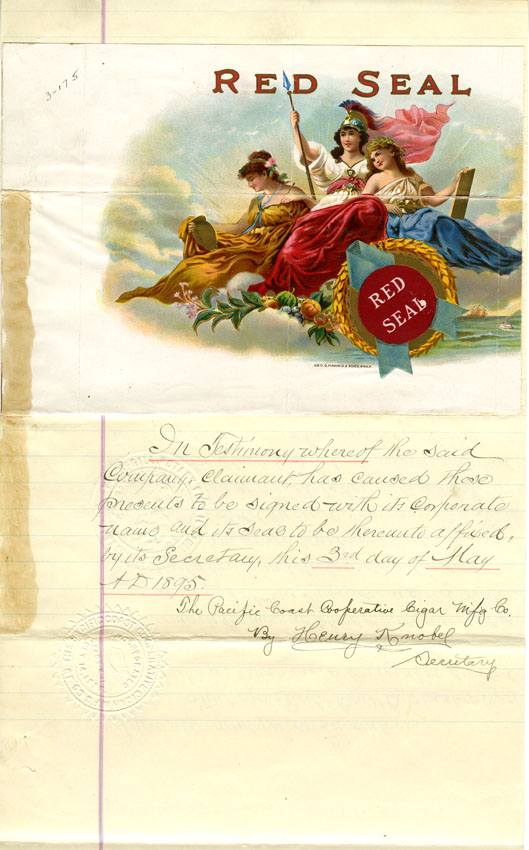 3-175
RED SEAL
RED
SEAL
GEO. S. HARRIS & SONS. PHILA.
In Testimony whereof the said
Company, Claimant, has caused these
presents to be signed with its Corporate
name and its seal to be thereunto affixed,
by its Secretary, this 3rd day of May
A.D 1895.
The Pacific Coast Cooperative Cigar Mfg Co.
By Henry Knobel
Secretary